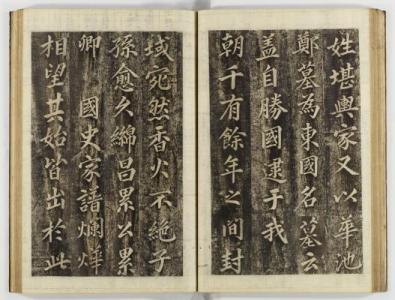 姓堪輿家又以華池
鄭墓為東國名墓云
盖自勝國逮于我
朝千有餘年之間封
域宛然香火不絶子
孫愈久綿昌累公累
卿 國史家譜爛燁
相望其始皆出於此